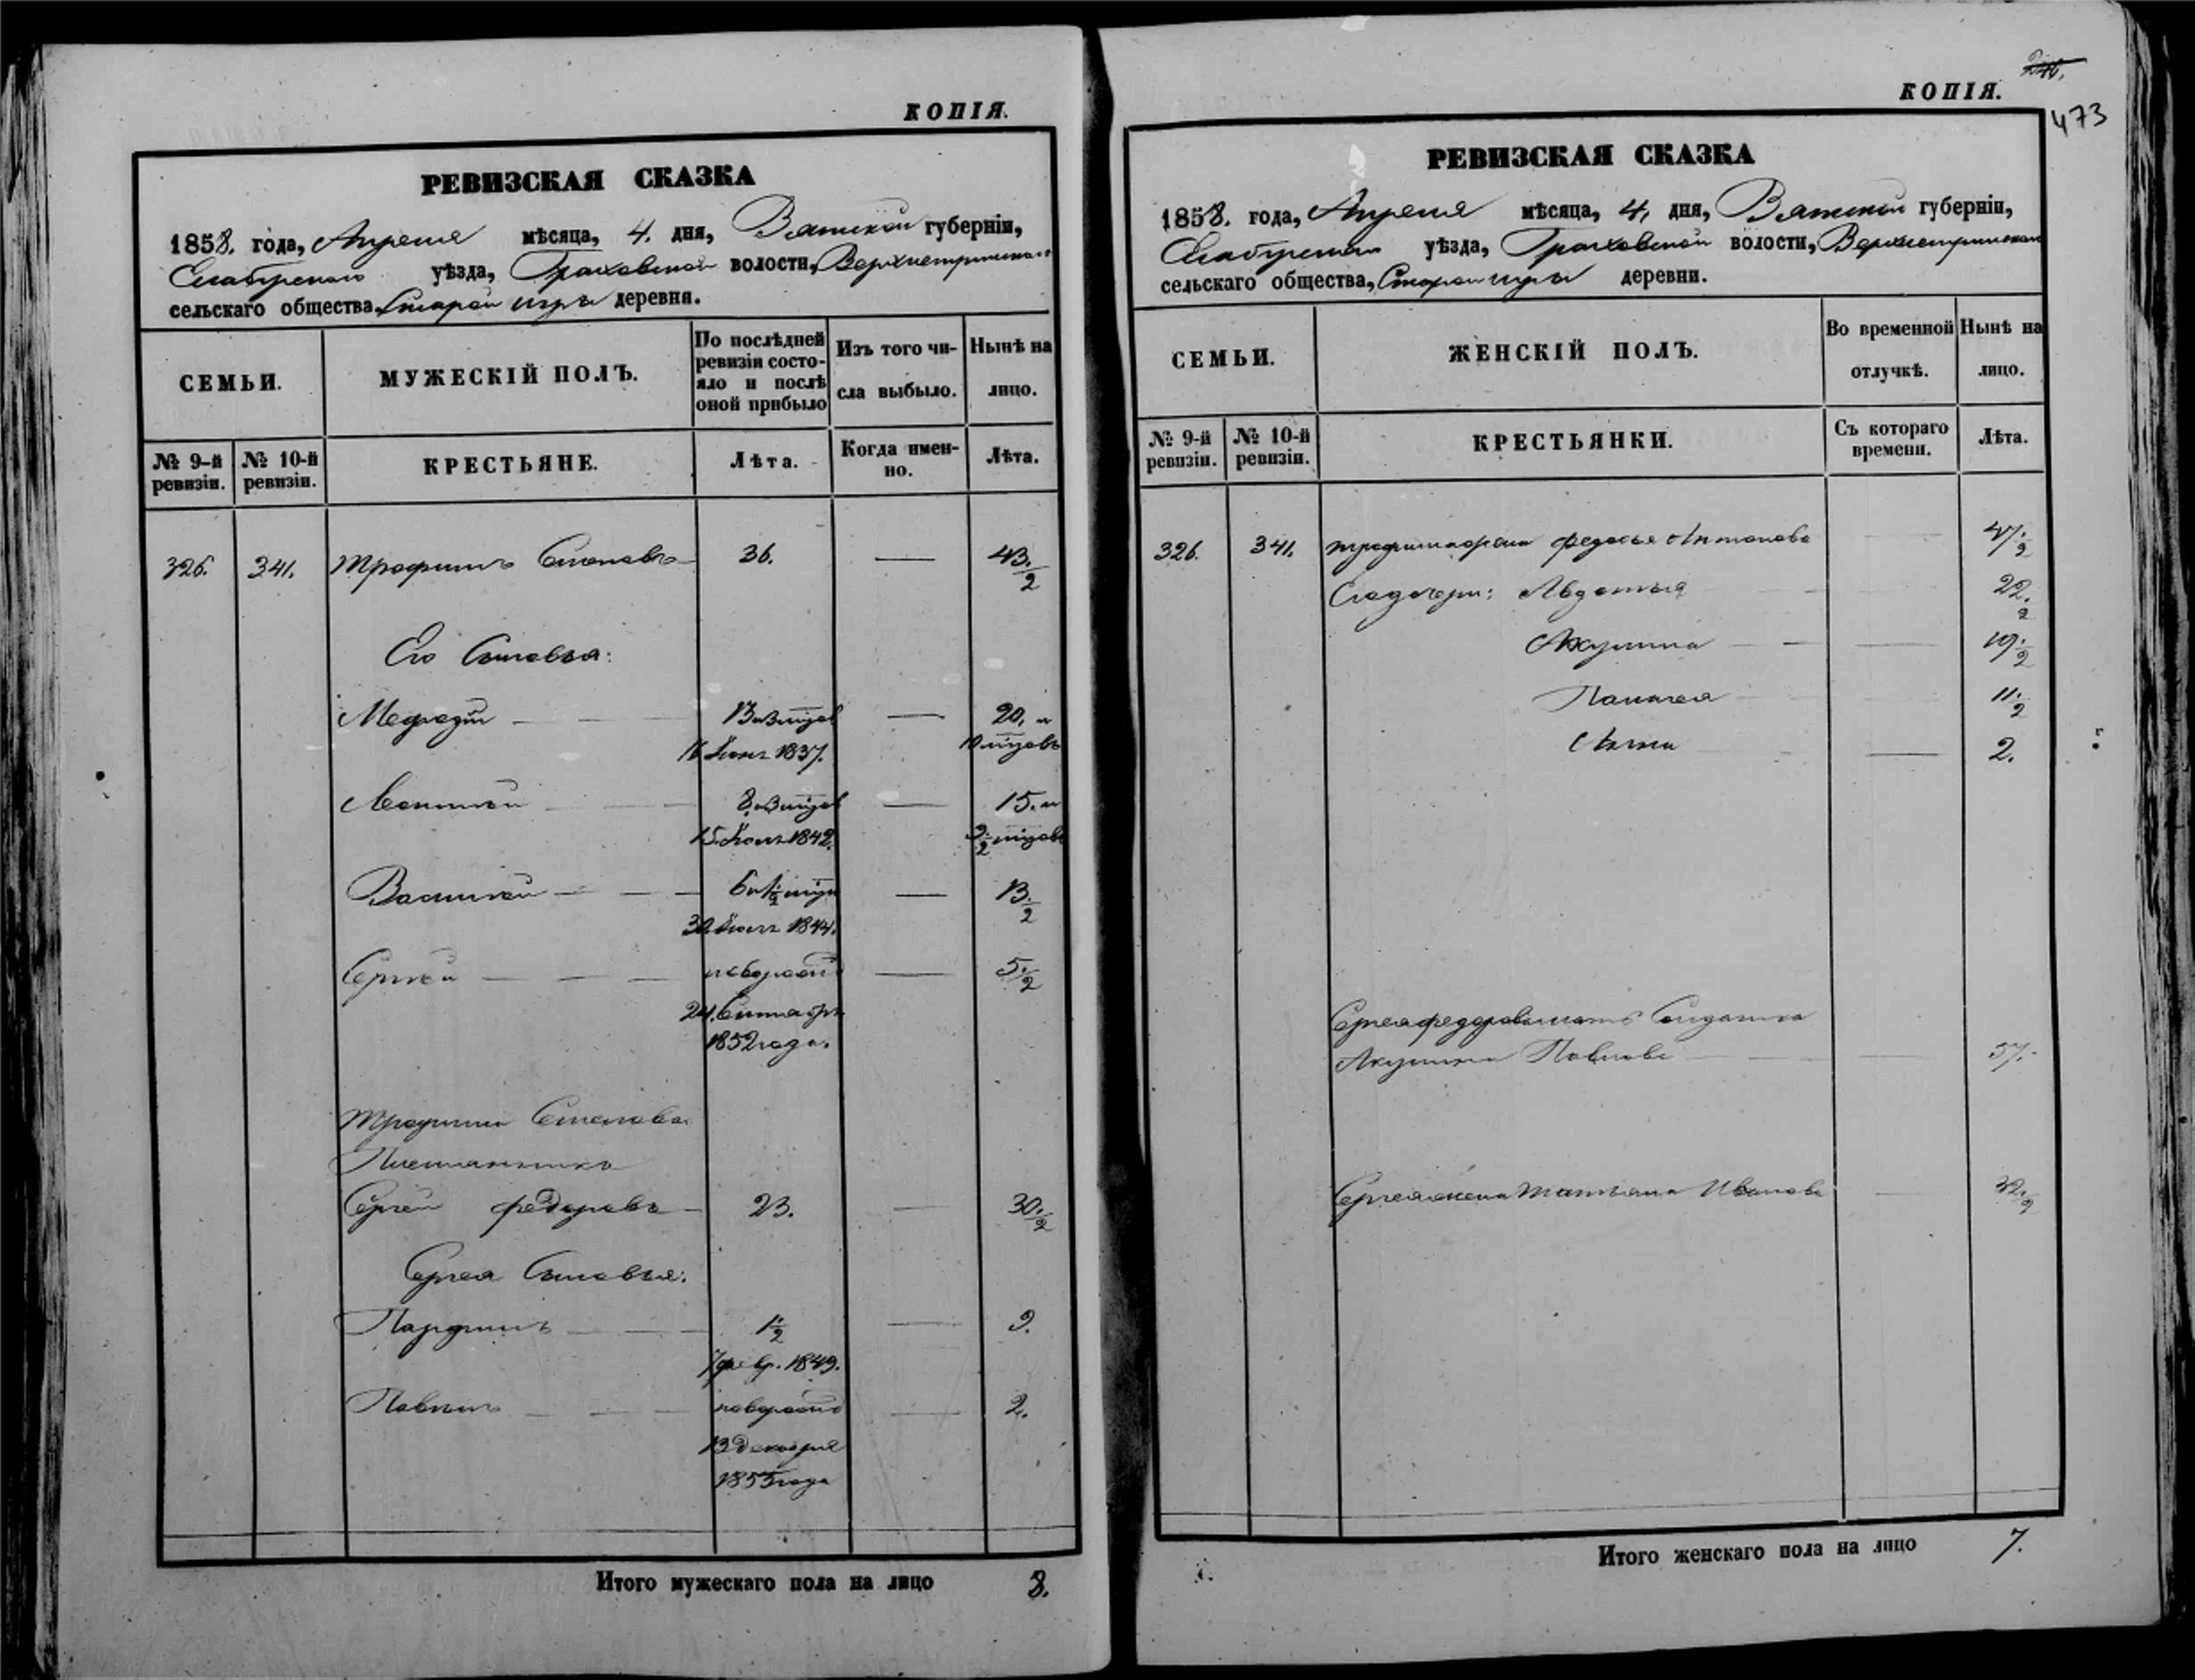 КОПІЯ.
РЕВИЗСКАЯ СКАЗКА
1858. года, Апреля мѣсяца, 4. дня, Вятской губерніи,
Елабужскаго уѣзда, Граховской волости,
сельскаго общества, Старой игры деревня.
СЕМЬИ.
МУЖЕСКІЙ ПОЛЪ.
По послѣдней ревизіи состояло и послѣ оной прибыло
Изъ того числа выбыло.
Нынѣ на лицо.
№ 9-й ревизіи.
№ 10-й ревизіи.
КРЕСТЬЯНЕ.
Лѣта.
Когда именно.
Лѣта.
326. 341. Трофимъ Степановъ 36. 43 1/2
Его Сыновья:
Мефодій 20. и
16 1837. 10 мѣсцовъ
Леонтій 15. и
15 1842.
Василій 13 1/2
1844.
Сергѣй новорожд 5 1/2
24. Сентября
1852 года.
Трофима Степанова
Племянникъ
Сергей Федоровъ 23. 30 1/2
Сергея Сыновья:
Парфенъ 1 1/2 9.
7 февр. 1849.
Павелъ новорожд 2.
13 Декабря
1855 года
Итого мужескаго пола на лицо 8.
КОПІЯ.
473
РЕВИЗСКАЯ СКАЗКА
1858. года, Апреля мѣсяца, 4. дня, Вятской губерніи,
уѣзда, Граховской волости,
сельскаго общества, Старой игры деревни.
СЕМЬИ.
ЖЕНСКІЙ ПОЛЪ.
Во временной отлучкѣ.
Нынѣ на лицо.
№ 9-й ревизіи.
№ 10-й ревизіи.
КРЕСТЬЯНКИ.
Съ котораго времени.
Лѣта.
326. 341. Трофима жена Федосья Антонова 47 1/2
Его дочери: Авдотья 22 1/2
Акулина 19 1/2
Палагея 11 1/2
Анна 2.
Сергея Федорова мать Солдатка
Акулина Павлова 57.
Сергея жена Татьяна Иванова 32 1/2
Итого женскаго пола на лицо 7.